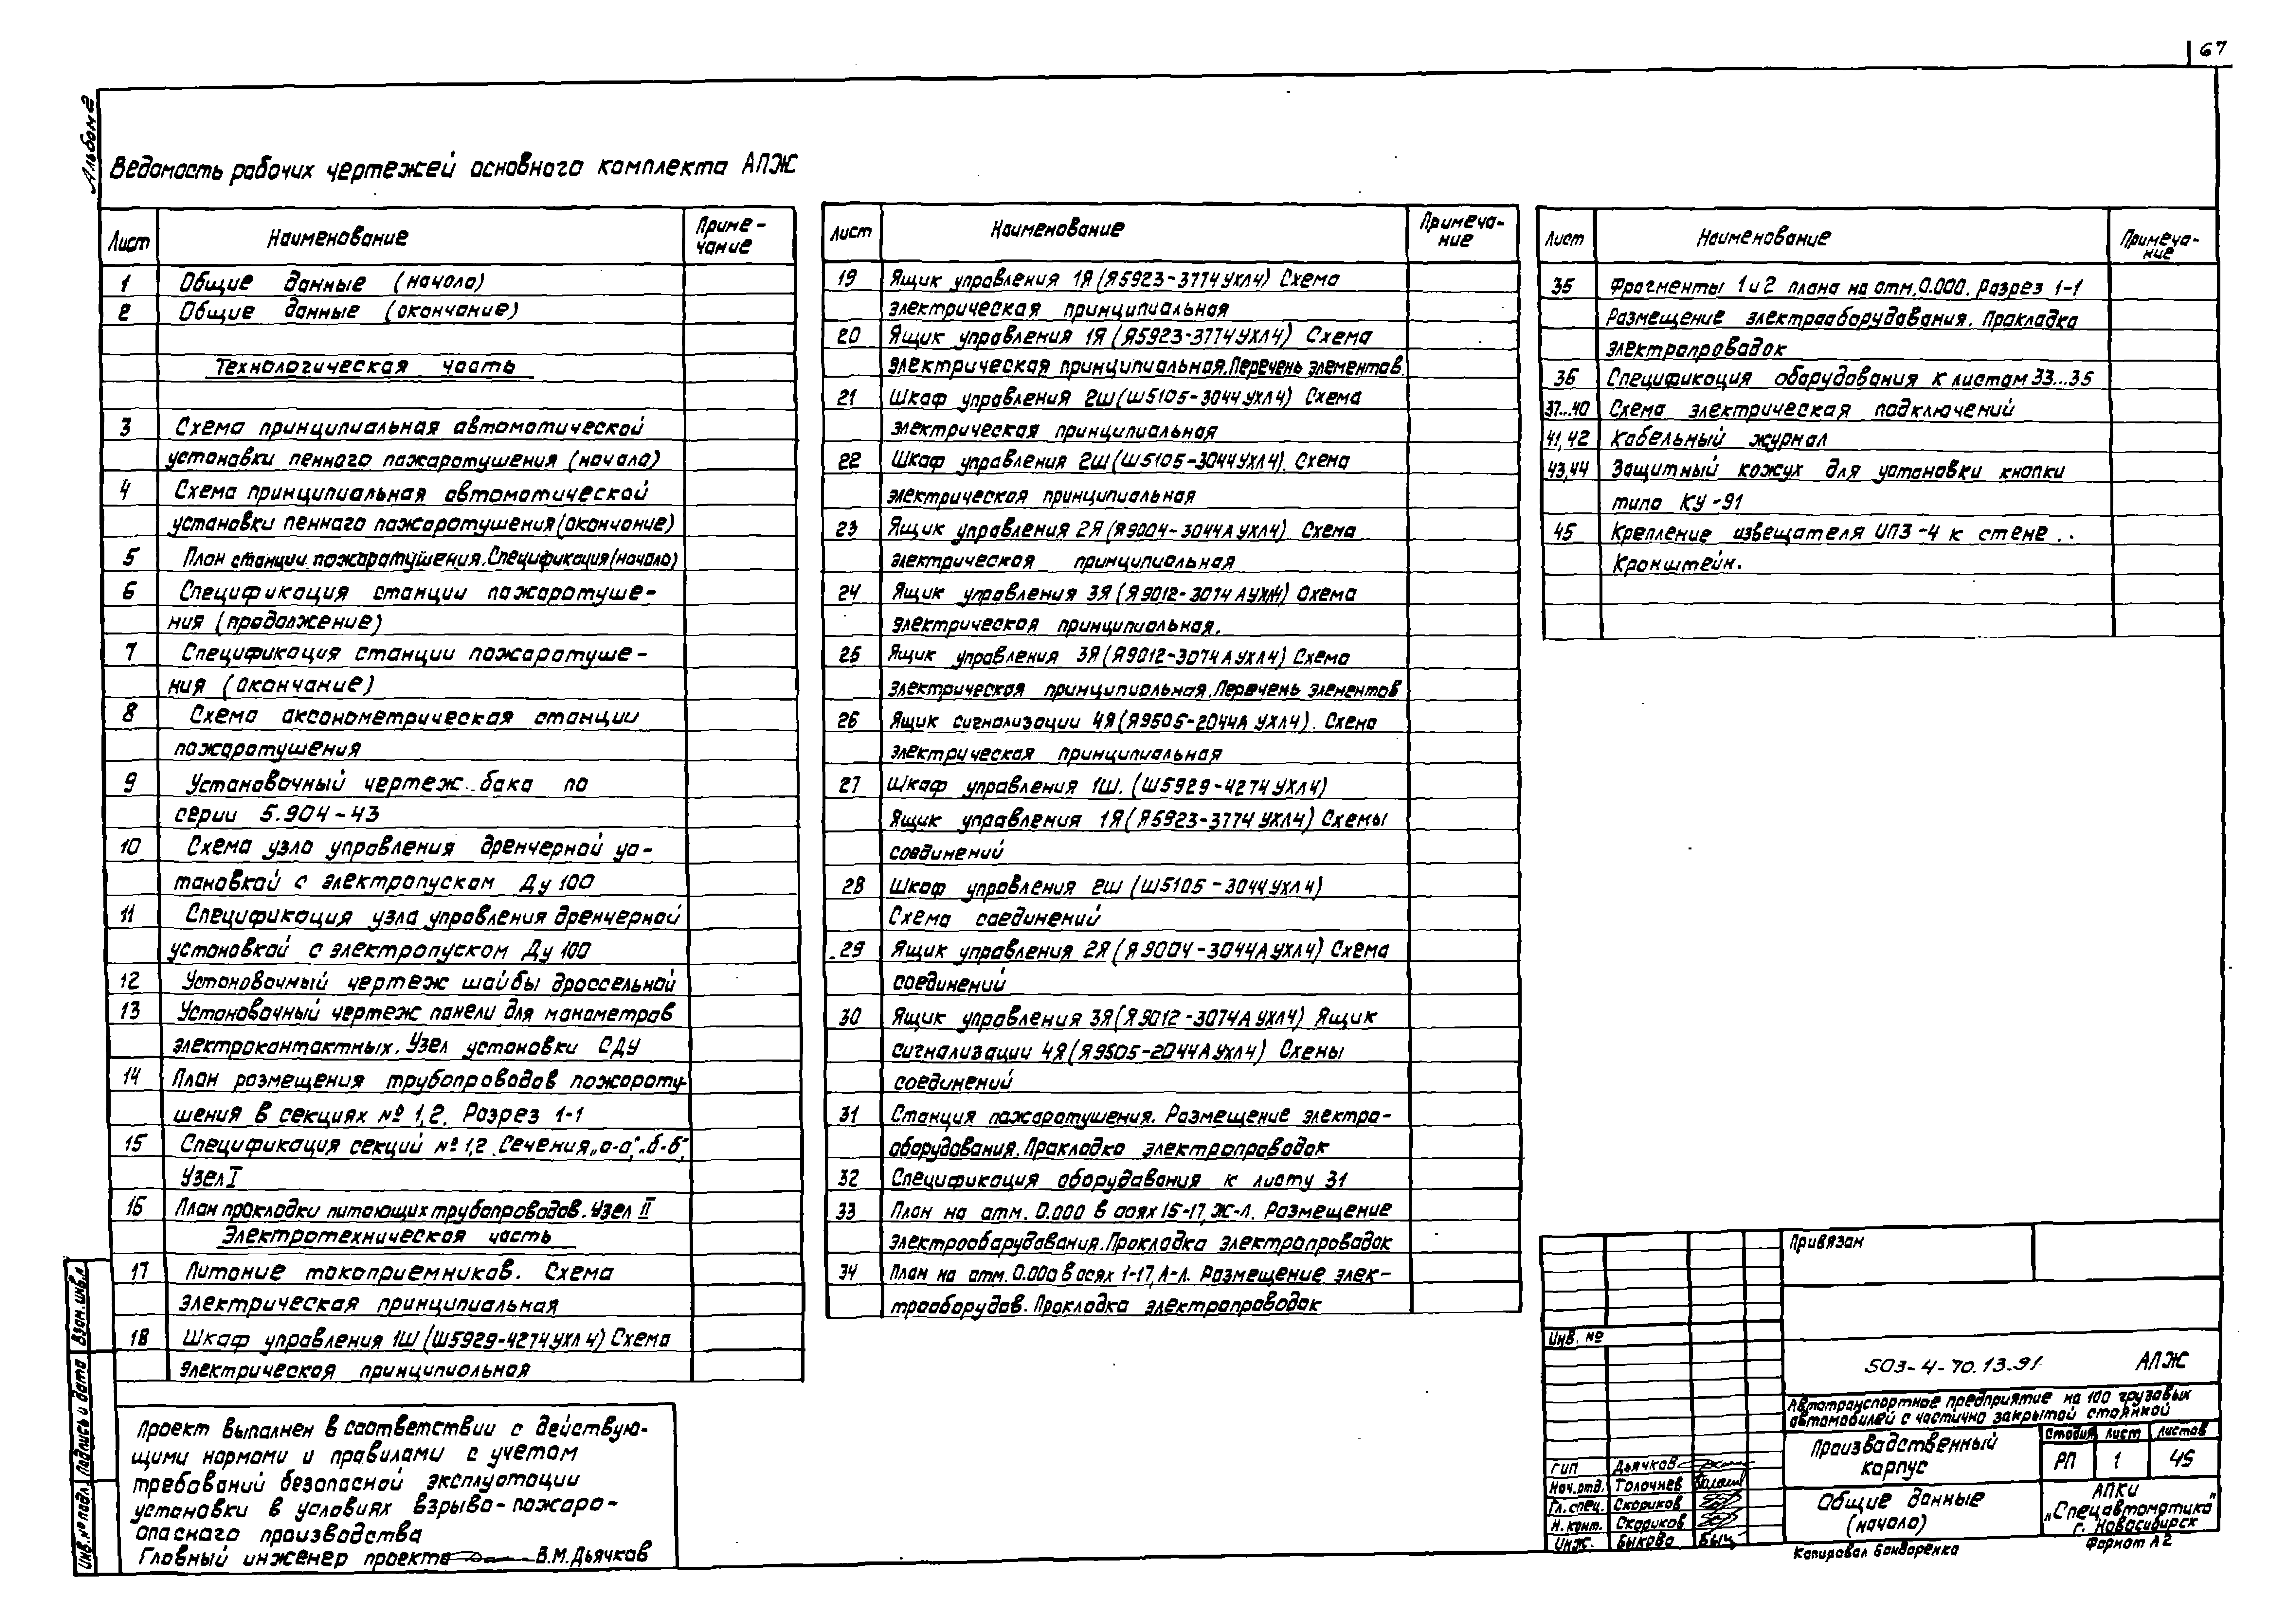 67
Альбом 2
Ведомость рабочих чертежей основного комплекта АПЖ
Лист Наименование Приме-
чание
1 Общие данные (начало)
2 Общие данные (окончание)
Технологическая часть
3 Схема принципиальная автоматической
установки пенного пожаротушения (начало)
4 Схема принципиальная автоматической
установки пенного пожаротушения (окончание)
5 План станции пожаротушения. Спецификация (начало)
6 Спецификация станции пожаротуше-
ния (продолжение)
7 Спецификация станции пожаротуше-
ния (окончание)
8 Схема аксонометрическая станции
пожаротушения
9 Установочный чертеж бака по
серии 5.904-43
10 Схема узла управления дренчерной ус-
тановкой с электропуском Ду 100
11 Спецификация узла управления дренчерной
установкой с электропуском Ду 100
12 Установочный чертеж шайбы дроссельной
13 Установочный чертеж панели для манометров
электроконтактных. Узел установки СДУ
14 План размещения трубопроводов пожароту-
шения в секциях № 1,2. Разрез 1-1
15 Спецификация секций № 1,2. Сечения „а-а", „б-б",
Узел I
16 План прокладки питающих трубопроводов. Узел II
Электротехническая часть
17 Питание токоприемников. Схема
электрическая принципиальная
18 Шкаф управления 1Ш (Ш5929-4274 УХЛ4) Схема
электрическая принципиальная
Лист Наименование Примеча-
ние
19 Ящик управления 1Я (Я5923-3774 УХЛ4) Схема
электрическая принципиальная
20 Ящик управления 1Я (Я5923-3774 УХЛ4) Схема
электрическая принципиальная. Перечень элементов.
21 Шкаф управления 2Ш (Ш5105-3044 УХЛ4) Схема
электрическая принципиальная
22 Шкаф управления 2Ш (Ш5105-3044 УХЛ4). Схема
электрическая принципиальная
23 Ящик управления 2Я (Я9004-3044А УХЛ4) Схема
электрическая принципиальная
24 Ящик управления 3Я (Я9012-3074 А УХЛ4) Схема
электрическая принципиальная.
25 Ящик управления 3Я (Я9012-3074 А УХЛ4) Схема
электрическая принципиальная. Перечень элементов
26 Ящик сигнализации 4Я (Я9505-2044А УХЛ4). Схема
электрическая принципиальная
27 Шкаф управления 1Ш. (Ш5929-4274 УХЛ4)
Ящик управления 1Я (Я5923-3774 УХЛ4) Схемы
соединений
28 Шкаф управления 2Ш (Ш5105-3044 УХЛ4)
Схема соединений
29 Ящик управления 2Я (Я9004-3044А УХЛ4) Схема
соединений
30 Ящик управления 3Я (Я9012-3074А УХЛ4) Ящик
сигнализации 4Я (Я9505-2044А УХЛ4) Схемы
соединений
31 Станция пожаротушения. Размещение электро-
оборудования. Прокладка электропроводок
32 Спецификация оборудования к листу 31
33 План на отм. 0.000 в осях 15-17, Ж-Л. Размещение
электрооборудования. Прокладка электропроводок
34 План на отм. 0.000 в осях 1-17, А-Л. Размещение элек-
трооборудов. Прокладка электропроводок
Лист Наименование Примеча-
ние
35 Фрагменты 1 и 2 плана на отм. 0.000. Разрез 1-1
Размещение электрооборудования. Прокладка
электропроводок
36 Спецификация оборудования к листам 33...35
37...40 Схема электрическая подключений
41,42 Кабельный журнал
43,44 Защитный кожух для установки кнопки
типа КУ-91
45 Крепление извещателя ИПЗ-4 к стене..
Кронштейн.
Проект выполнен в соответствии с действую-
щими нормами и правилами с учетом
требований безопасной эксплуатации
установки в условиях взрыво-пожаро-
опасного производства
Главный инженер проекта В.М.Дьячков
Взам. инв.л
Подпись и дата
Инв.№ подл.
Привязан
Инв. №
503-4-70.13.91 АПЖ
Автотранспортное предприятие на 100 грузовых
автомобилей с частично закрытой стоянкой
Производственный
корпус
Стадия Лист Листов
РП 1 45
Общие данные
(начало)
АПКИ
„Спецавтоматика"
г. Новосибирск
ГИП Дьячков
Нач.отд. Толочнев
Гл.спец. Скориков
Н.конт. Скориков
Инж. Быкова
Копировал Бондаренко
Формат А2